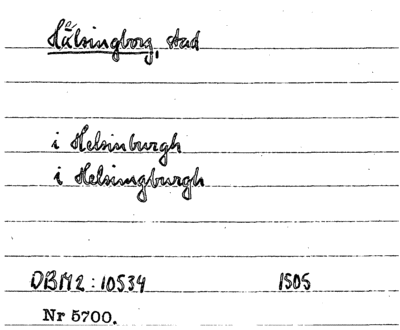 Hälsingborg, stad
i Helsinburgh
i Helsingburgh
DBM2:10534 1505
Nr 5700.